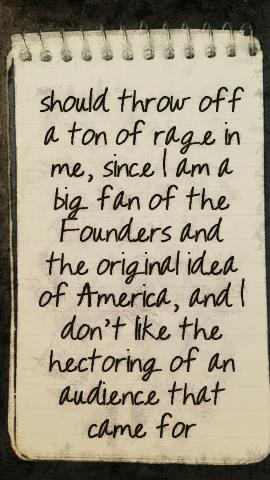 should throw off
a ton of rage in
me, since I am a
big fan of the
Founders and
the original idea
of America, and I
don't like the
hectoring of an
audience that
came for